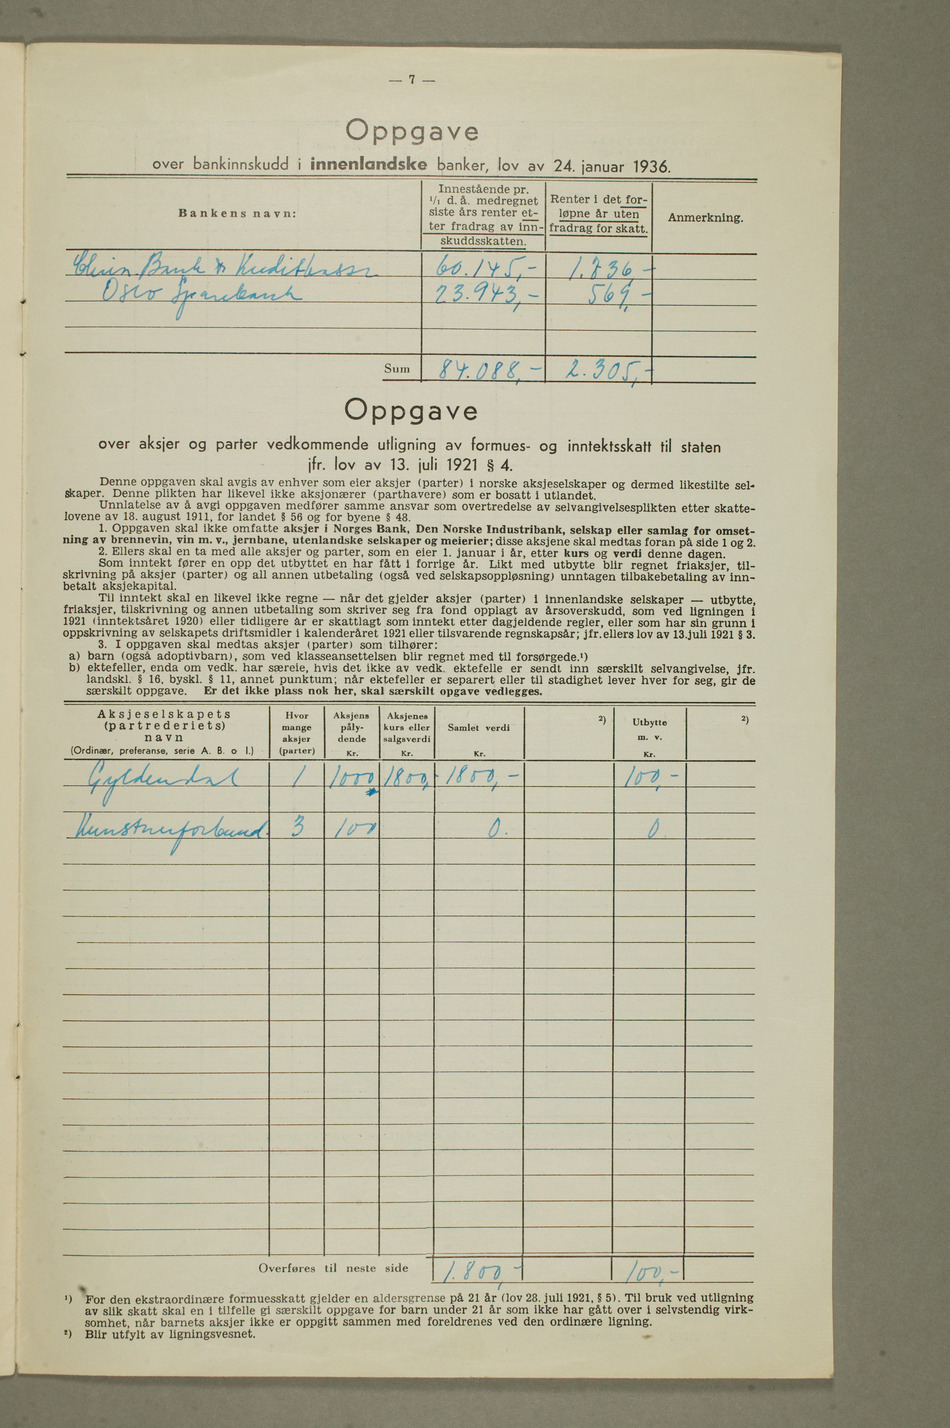 — 7 —
Oppgave
over bankinnskudd i innenlandske banker, lov av 24. januar 1936.
Bankens navn:
Innestående pr.
1/1 d. å. medregnet
siste års renter et-
ter fradrag av inn-
skuddsskatten.
Renter i det for-
løpne år uten
fradrag for skatt.
Anmerkning.
Bank & Kreditkasse 60.145,- 1.736,-
Oslo Sparebank 23.943,- 569,-
Sum 84.088,- 2.305,-
Oppgave
over aksjer og parter vedkommende utligning av formues- og inntektsskatt til staten
jfr. lov av 13. juli 1921 § 4.
Denne oppgaven skal avgis av enhver som eier aksjer (parter) i norske aksjeselskaper og dermed likestilte sel-
skaper. Denne plikten har likevel ikke aksjonærer (parthavere) som er bosatt i utlandet.
Unnlatelse av å avgi oppgaven medfører samme ansvar som overtredelse av selvangivelsesplikten etter skatte-
lovene av 18. august 1911, for landet § 56 og for byene § 48.
1. Oppgaven skal ikke omfatte aksjer i Norges Bank, Den Norske Industribank, selskap eller samlag for omset-
ning av brennevin, vin m. v., jernbane, utenlandske selskaper og meierier; disse aksjene skal medtas foran på side 1 og 2.
2. Ellers skal en ta med alle aksjer og parter, som en eier 1. januar i år, etter kurs og verdi denne dagen.
Som inntekt fører en opp det utbyttet en har fått i forrige år. Likt med utbytte blir regnet friaksjer, til-
skrivning på aksjer (parter) og all annen utbetaling (også ved selskapsoppløsning) unntagen tilbakebetaling av inn-
betalt aksjekapital.
Til inntekt skal en likevel ikke regne — når det gjelder aksjer (parter) i innenlandske selskaper — utbytte,
friaksjer, tilskrivning og annen utbetaling som skriver seg fra fond opplagt av årsoverskudd, som ved ligningen i
1921 (inntektsåret 1920) eller tidligere år er skattlagt som inntekt etter dagjeldende regler, eller som har sin grunn i
oppskrivning av selskapets driftsmidler i kalenderåret 1921 eller tilsvarende regnskapsår; jfr. ellers lov av 13. juli 1921 § 3.
3. I oppgaven skal medtas aksjer (parter) som tilhører:
a) barn (også adoptivbarn), som ved klasseansettelsen blir regnet med til forsørgede.¹)
b) ektefeller, enda om vedk. har særeie, hvis det ikke av vedk. ektefelle er sendt inn særskilt selvangivelse, jfr.
landskl. § 16, byskl. § 11, annet punktum; når ektefeller er separert eller til stadighet lever hver for seg, gir de
særskilt oppgave. Er det ikke plass nok her, skal særskilt opgave vedlegges.
Aksjeselskapets
(partrederiets)
navn
(Ordinær, preferanse, serie A. B. o l.)
Hvor
mange
aksjer
(parter)
Aksjens
påly-
dende
Kr.
Aksjenes
kurs eller
salgsverdi
Kr.
Samlet verdi
Kr.
²)
Utbytte
m. v.
Kr.
²)
Gyldendal 1 1000 1800,- 1800,- 100,-
Kunstnerforbund. 3 100 0. 0
Overføres til neste side 1.800,- 100,-
¹) For den ekstraordinære formuesskatt gjelder en aldersgrense på 21 år (lov 28. juli 1921, § 5). Til bruk ved utligning
av slik skatt skal en i tilfelle gi særskilt oppgave for barn under 21 år som ikke har gått over i selvstendig virk-
somhet, når barnets aksjer ikke er oppgitt sammen med foreldrenes ved den ordinære ligning.
²) Blir utfylt av ligningsvesnet.